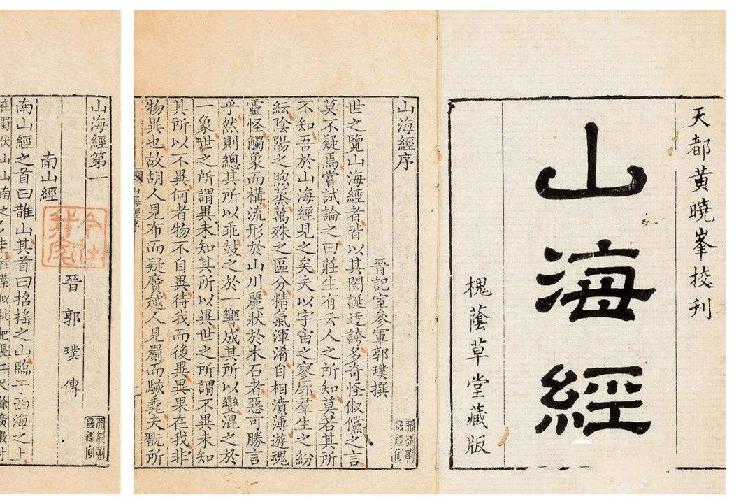 天都黃曉峯挍刋
山海經
槐蔭草堂藏版
山海經序
晉記室參軍郭璞撰
世之覽山海經者皆以其閎誕迂誇多奇怪俶儻之言
莫不疑焉嘗試論之曰莊生有云人之所知莫若其所
不知吾於山海經見之矣夫以宇宙之寥廓羣生之紛
紜陰陽之煦蒸萬殊之區分精氣渾淆自相濆薄遊魂
靈怪觸象而構流形於山川麗狀於木石者惡可勝言
乎然則總其所以乖鼓之於一響成其所以變混之於
一象世之所謂異未知其所以異世之所謂不異未知
其所以不異何者物不自異待我而後異異果在我非
物異也故胡人見布而疑黂越人見罽而駭毳夫翫所
山海經第一
晉郭璞傳
南山經
南山經之首曰䧿山其首曰招搖之山臨于西海之上